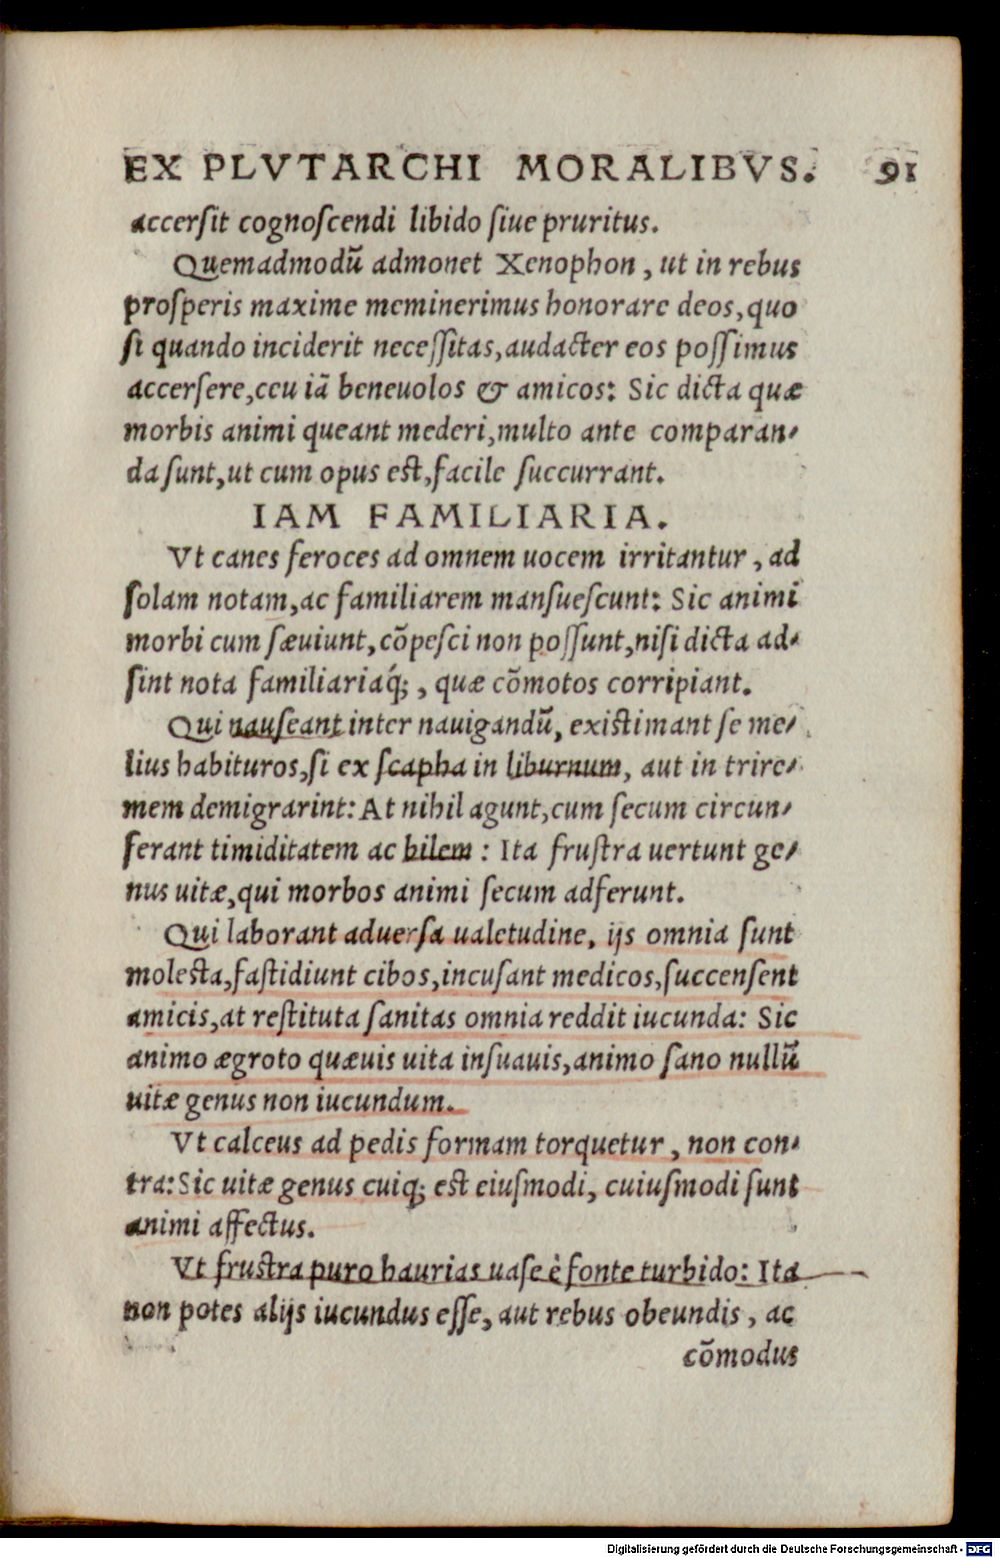 EX PLVTARCHI MORALIBVS. 91
accersit cognoscendi libido siue pruritus.
Quemadmodũ admonet Xenophon, ut in rebus
prosperis maxime meminerimus honorare deos, quo
si quando inciderit necessitas, audacter eos possimus
accersere, ceu iã beneuolos & amicos: Sic dicta quæ
morbis animi queant mederi, multo ante comparan-
da sunt, ut cum opus est, facile succurrant.
IAM FAMILIARIA.
Vt canes feroces ad omnem uocem irritantur, ad
solam notam, ac familiarem mansuescunt: Sic animi
morbi cum sæuiunt, cõpesci non possunt, nisi dicta ad-
sint nota familiariaq́;, quæ cõmotos corripiant.
Qui nauseant inter nauigandũ, existimant se me-
lius habituros, si ex scapha in liburnum, aut in trire-
mem demigrarint: At nihil agunt, cum secum circun-
ferant timiditatem ac bilem: Ita frustra uertunt ge-
nus uitæ, qui morbos animi secum adferunt.
Qui laborant aduersa ualetudine, ijs omnia sunt
molesta, fastidiunt cibos, incusant medicos, succensent
amicis, at restituta sanitas omnia reddit iucunda: Sic
animo ægroto quæuis uita insuauis, animo sano nullũ
uitæ genus non iucundum.
Vt calceus ad pedis formam torquetur, non con-
tra: Sic uitæ genus cuiq; est eiusmodi, cuiusmodi sunt
animi affectus.
Vt frustra puro haurias uase è fonte turbido: Ita
non potes alijs iucundus esse, aut rebus obeundis, ac
cõmodus
Digitalisierung gefördert durch die Deutsche Forschungsgemeinschaft - DFG